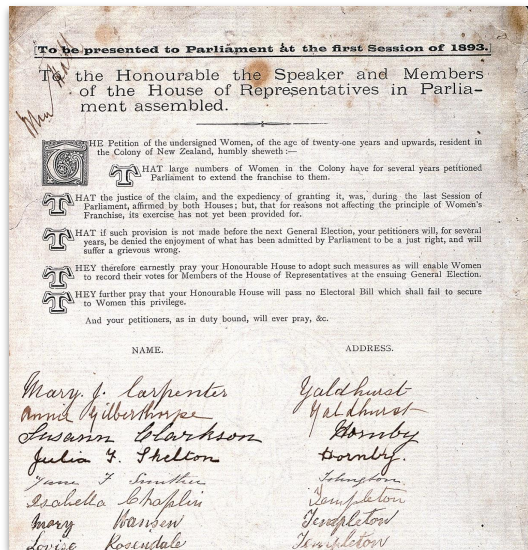 To be presented to Parliament at the first Session of 1893.
To the Honourable the Speaker and Members
of the House of Representatives in Parlia-
ment assembled.
THE Petition of the undersigned Women, of the age of twenty-one years and upwards, resident in
the Colony of New Zealand, humbly sheweth :—
THAT large numbers of Women in the Colony have for several years petitioned
Parliament to extend the franchise to them.
THAT the justice of the claim, and the expediency of granting it, was, during the last Session of
Parliament, affirmed by both Houses; but, that for reasons not affecting the principle of Women's
Franchise, its exercise has not yet been provided for.
THAT if such provision is not made before the next General Election, your petitioners will, for several
years, be denied the enjoyment of what has been admitted by Parliament to be a just right, and will
suffer a grievous wrong.
THEY therefore earnestly pray your Honourable House to adopt such measures as will enable Women
to record their votes for Members of the House of Representatives at the ensuing General Election.
THEY further pray that your Honourable House will pass no Electoral Bill which shall fail to secure
to Women this privilege.
And your petitioners, as in duty bound, will ever pray, &c.
NAME. ADDRESS.
Mary J. Carpenter Yaldhurst
Annie Gilberthorpe Yaldhurst
Susann Clarkson Hornby
Julia F. Shelton Hornby.
Isabella Chaplin Templeton
Mary Hansen Templeton
Louise Rosendale Templeton